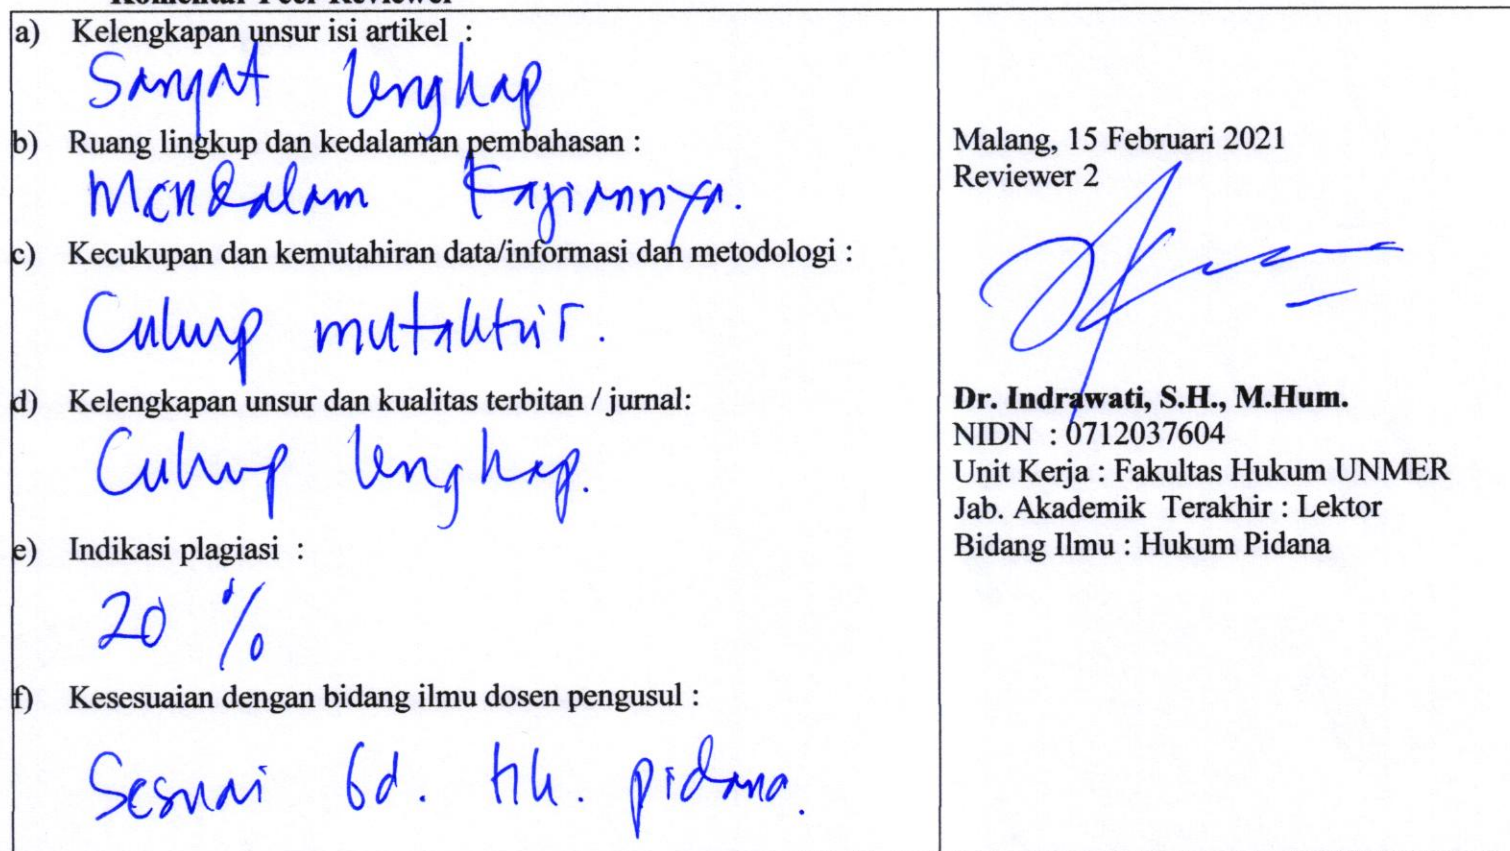 Komentar Peer Reviewer
a) Kelengkapan unsur isi artikel :
Sangat lengkap
b) Ruang lingkup dan kedalaman pembahasan :
Mendalam Kajiannya.
c) Kecukupan dan kemutahiran data/informasi dan metodologi :
Cukup mutakhir.
d) Kelengkapan unsur dan kualitas terbitan / jurnal:
Cukup lengkap.
e) Indikasi plagiasi :
20 %
f) Kesesuaian dengan bidang ilmu dosen pengusul :
Sesuai bd. Hk. pidana.
Malang, 15 Februari 2021
Reviewer 2
Dr. Indrawati, S.H., M.Hum.
NIDN : 0712037604
Unit Kerja : Fakultas Hukum UNMER
Jab. Akademik Terakhir : Lektor
Bidang Ilmu : Hukum Pidana